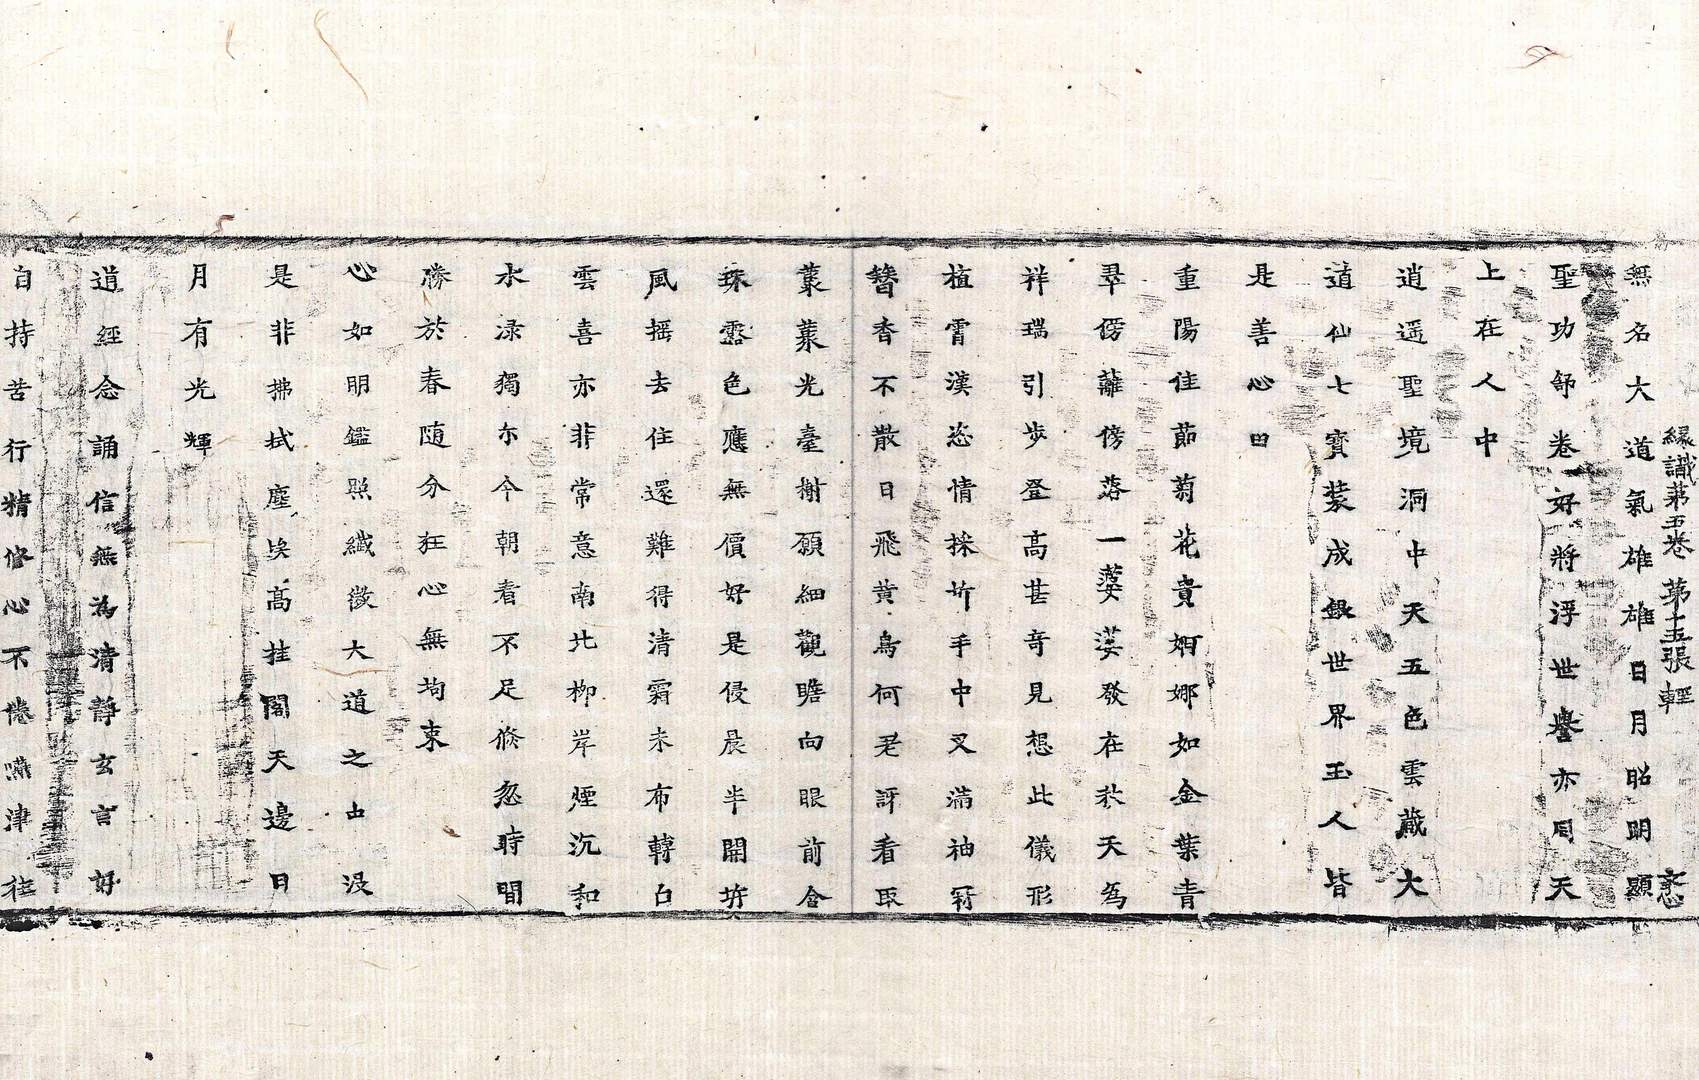 緣識第五卷 第十五張 輕
無名大道氣雄雄日月昭明顯
聖功舒卷好將浮世譽亦同天
上在人中
逍遥聖境洞中天五色雲藏大
道仙七寶裝成銀世界玉人皆
是善心田
重陽佳節菊花貴婀娜如金葉青
翠傍蘺傍落一蔢蔢發在秋天為
祥瑞引步登高甚奇見想此儀形
植霄漢恣情採折手中又滿袖冠
簪香不散日飛黃鳥何君訝看取
叢叢光臺榭願細觀瞻向眼前含
珠露色應無價好是侵晨半開坼
風搖去住還難得清霜未布轉白
雲喜亦非常意南北柳岸煙沉和
水渌獨亦今朝看不足倏忽時間
勝於春随分狂心無拘束
心如明鑑照纖微大道之中没
是非拂拭塵埃高挂閣天邊日
月有光輝
道經念誦信無為清靜玄言好
自持苦行精修心不倦嚥津往